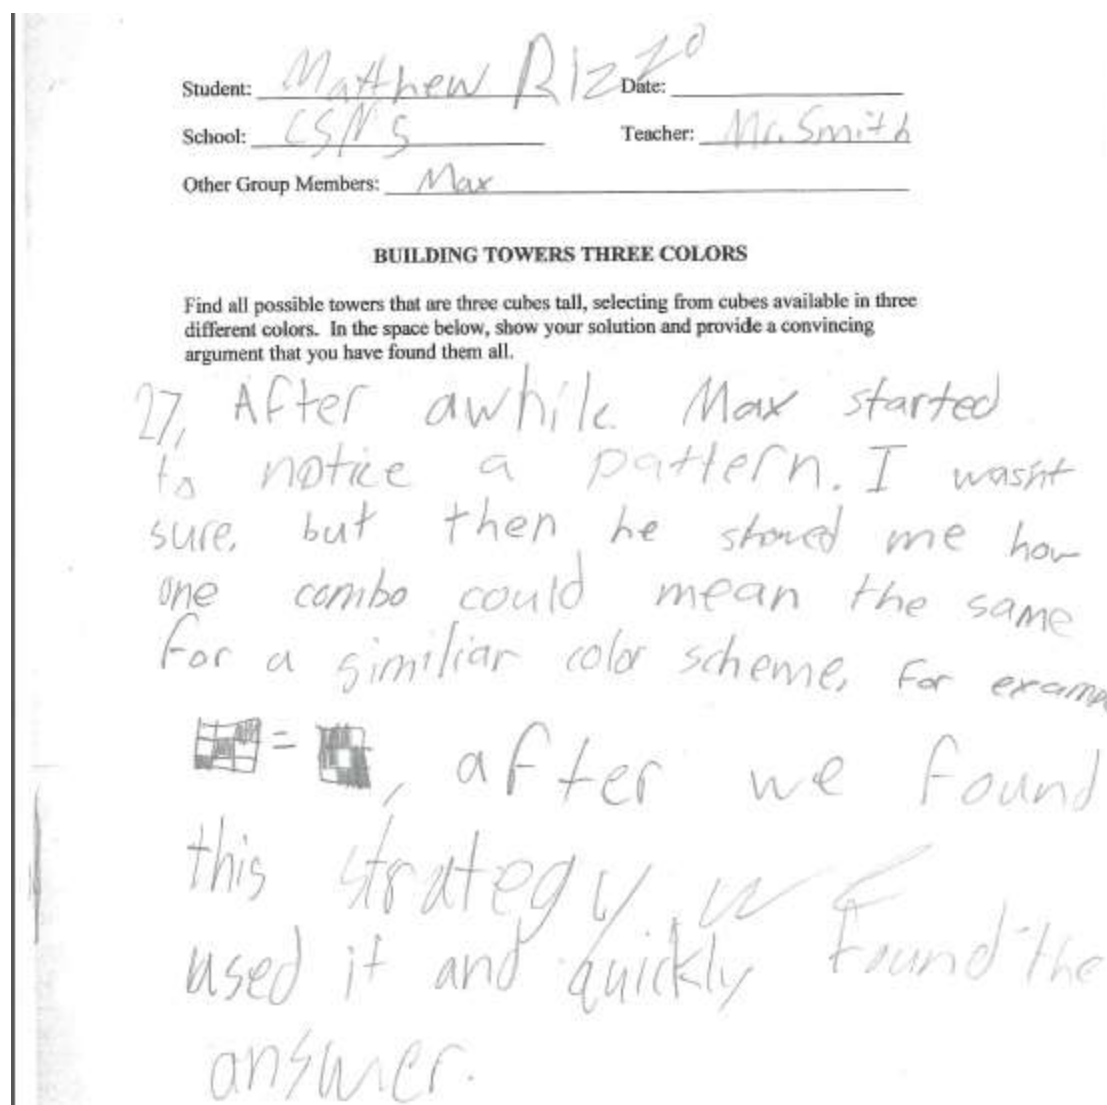 Student: Matthew Rizzo Date:
School: CSNS Teacher: Mr. Smith
Other Group Members: Max
BUILDING TOWERS THREE COLORS
Find all possible towers that are three cubes tall, selecting from cubes available in three
different colors. In the space below, show your solution and provide a convincing
argument that you have found them all.
27, After awhile Max started
to notice a pattern. I wasn't
sure, but then he showed me how
one combo could mean the same
for a similiar color scheme, For examp
= , after we found
this strategy we
used it and quickly found the
answer.